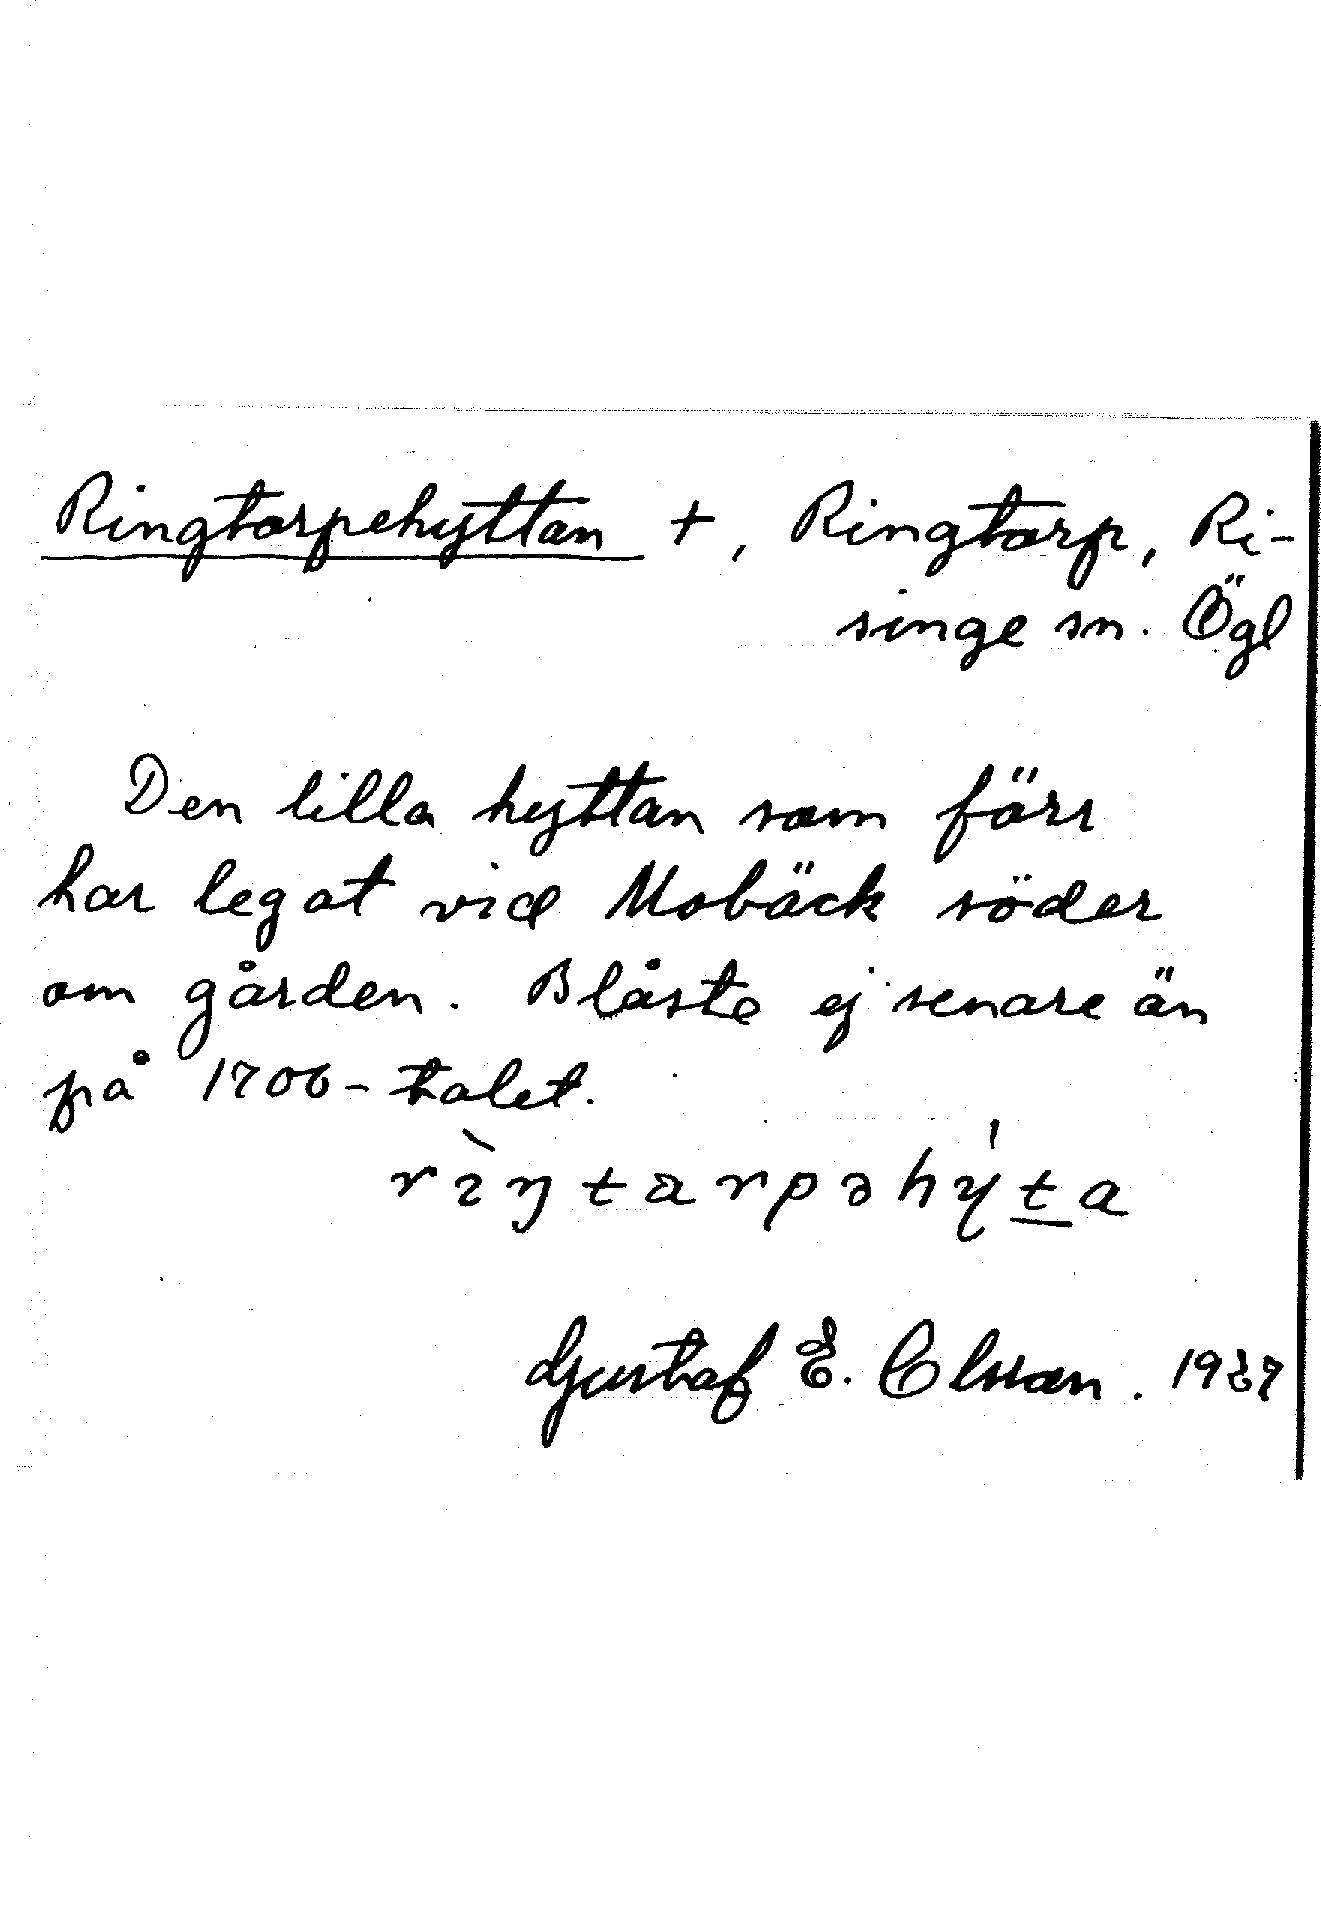 Ringtorpehyttan +, Ringtorp, Ri-
singe sn. Ögl
Den lilla hyttan som förr
har legat vid Mobäck söder
om gården. Blåste ej senare än
på 1700-talet.
rìŋtarpəhy̍ṯa
Gustaf E. Olsson. 1937